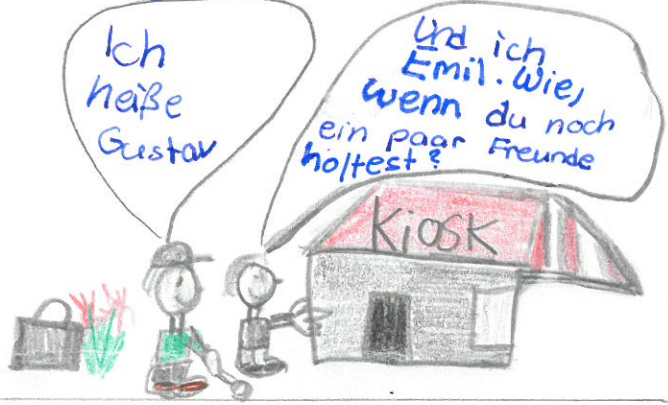 Ich
heiße
Gustav
Und ich
Emil. Wie,
wenn du noch
ein paar Freunde
holtest?
Kiosk